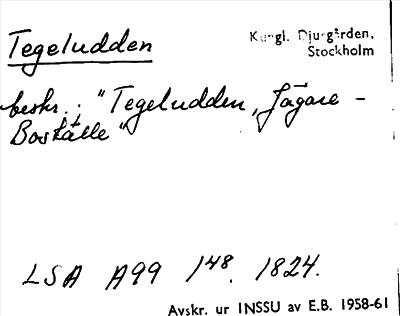 Tegeludden
Kungl. Djurgården,
Stockholm
beskr.: "Tegeludden, Jägare-
Boställe"
LSA A99 148. 1824.
Avskr. ur INSSU av E.B. 1958-61